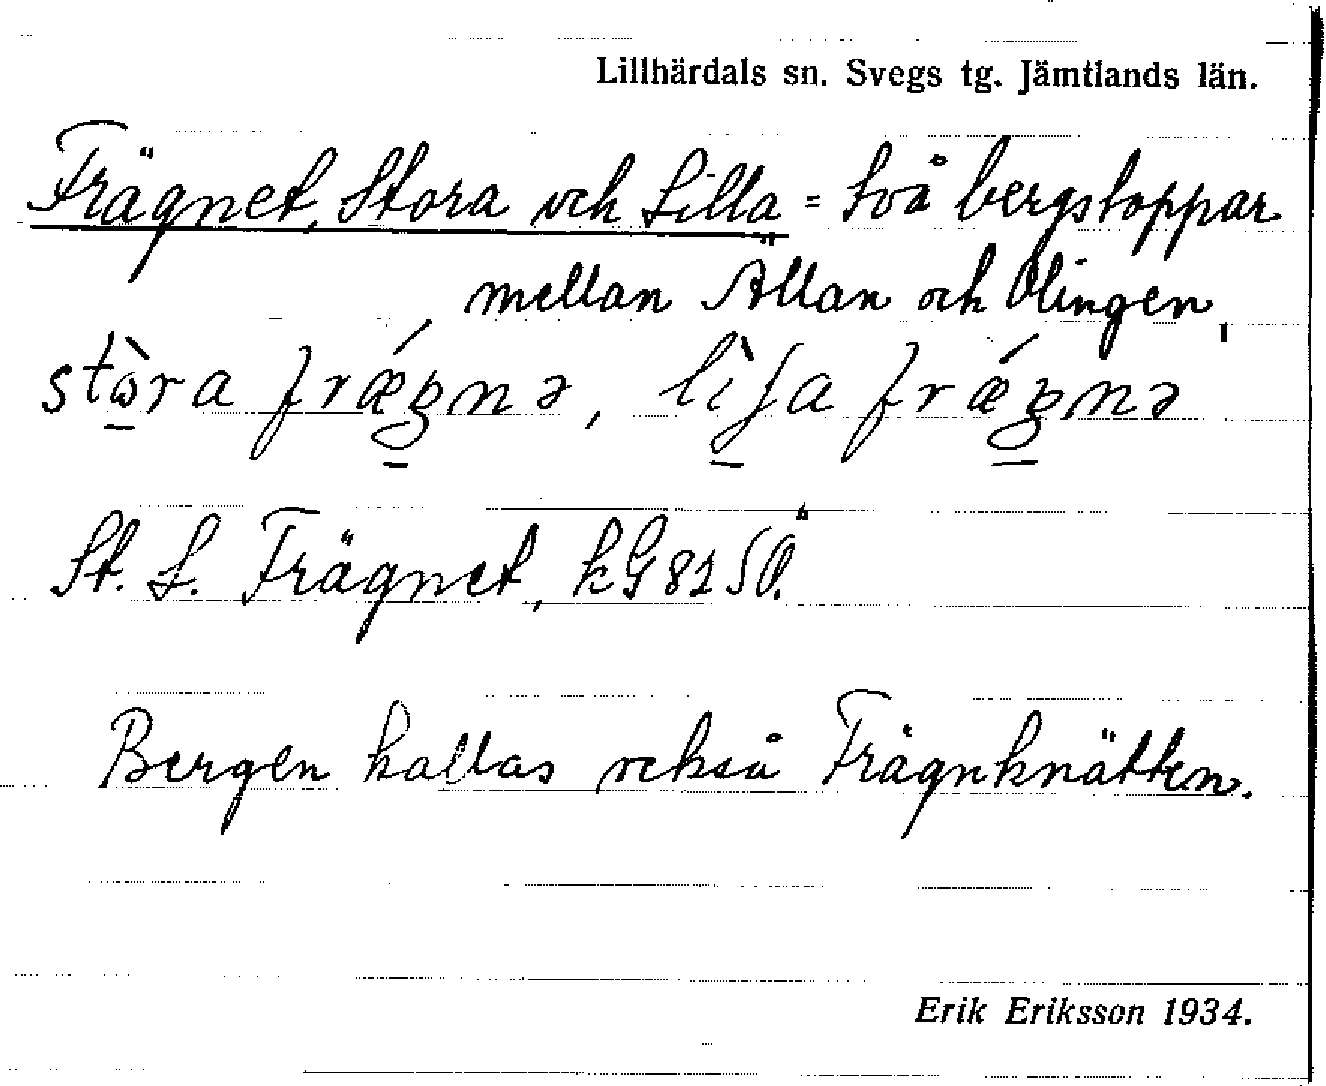 Lillhärdals sn. Svegs tg. Jämtlands län.
Frägnet, Stora och Lilla = två bergstoppar
mellan Ällan och Olingen,
stòra frǽgnə, lìʃa frǽgnə
St. L. Frägnet, kG 82 SÖ.
Bergen kallas också Frägnknätten.
Erik Eriksson 1934.